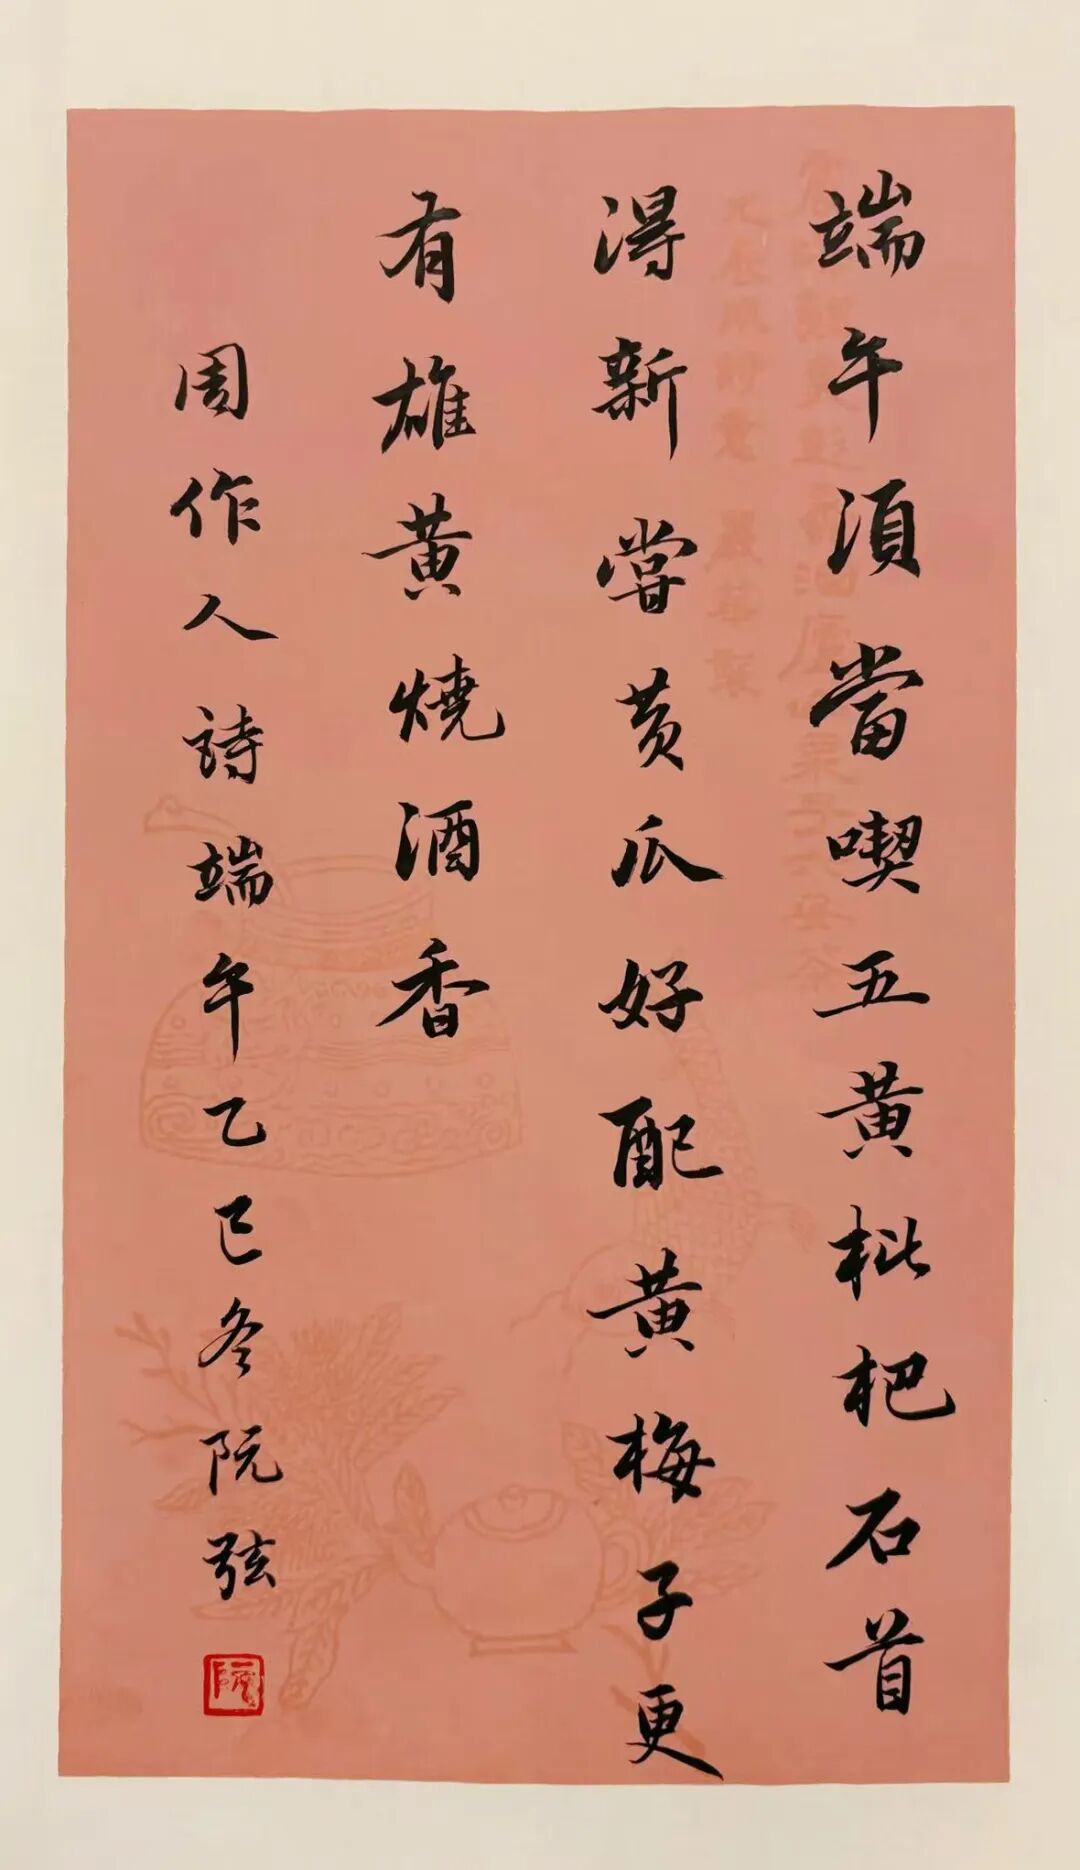 端午須當喫五黃枇杷石首
得新嘗黃瓜好配黃梅子更
有雄黃燒酒香
周作人詩端午乙巳冬阮弦
阮